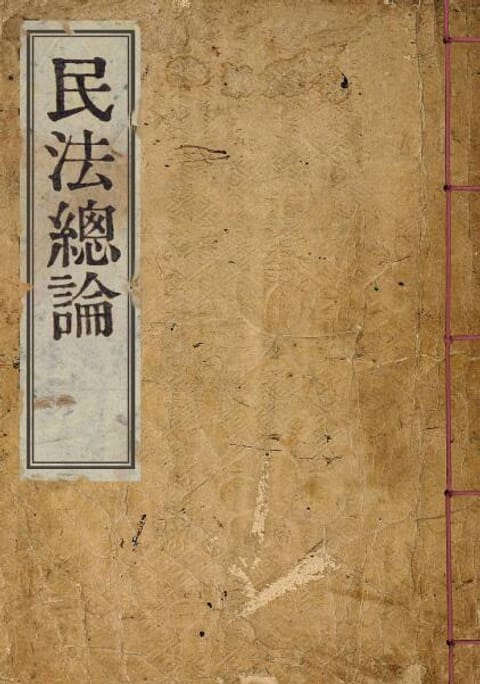 民法總論